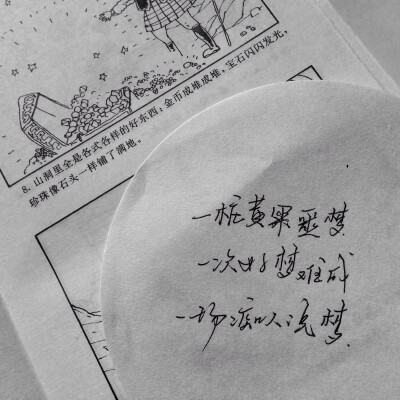 8. 山洞里全是各式各样的好东西：金币成堆成堆，宝石闪闪发光，
珍珠像石头一样铺了满地。
一桩黄粱噩梦
一次好梦难成
一场痴人说梦